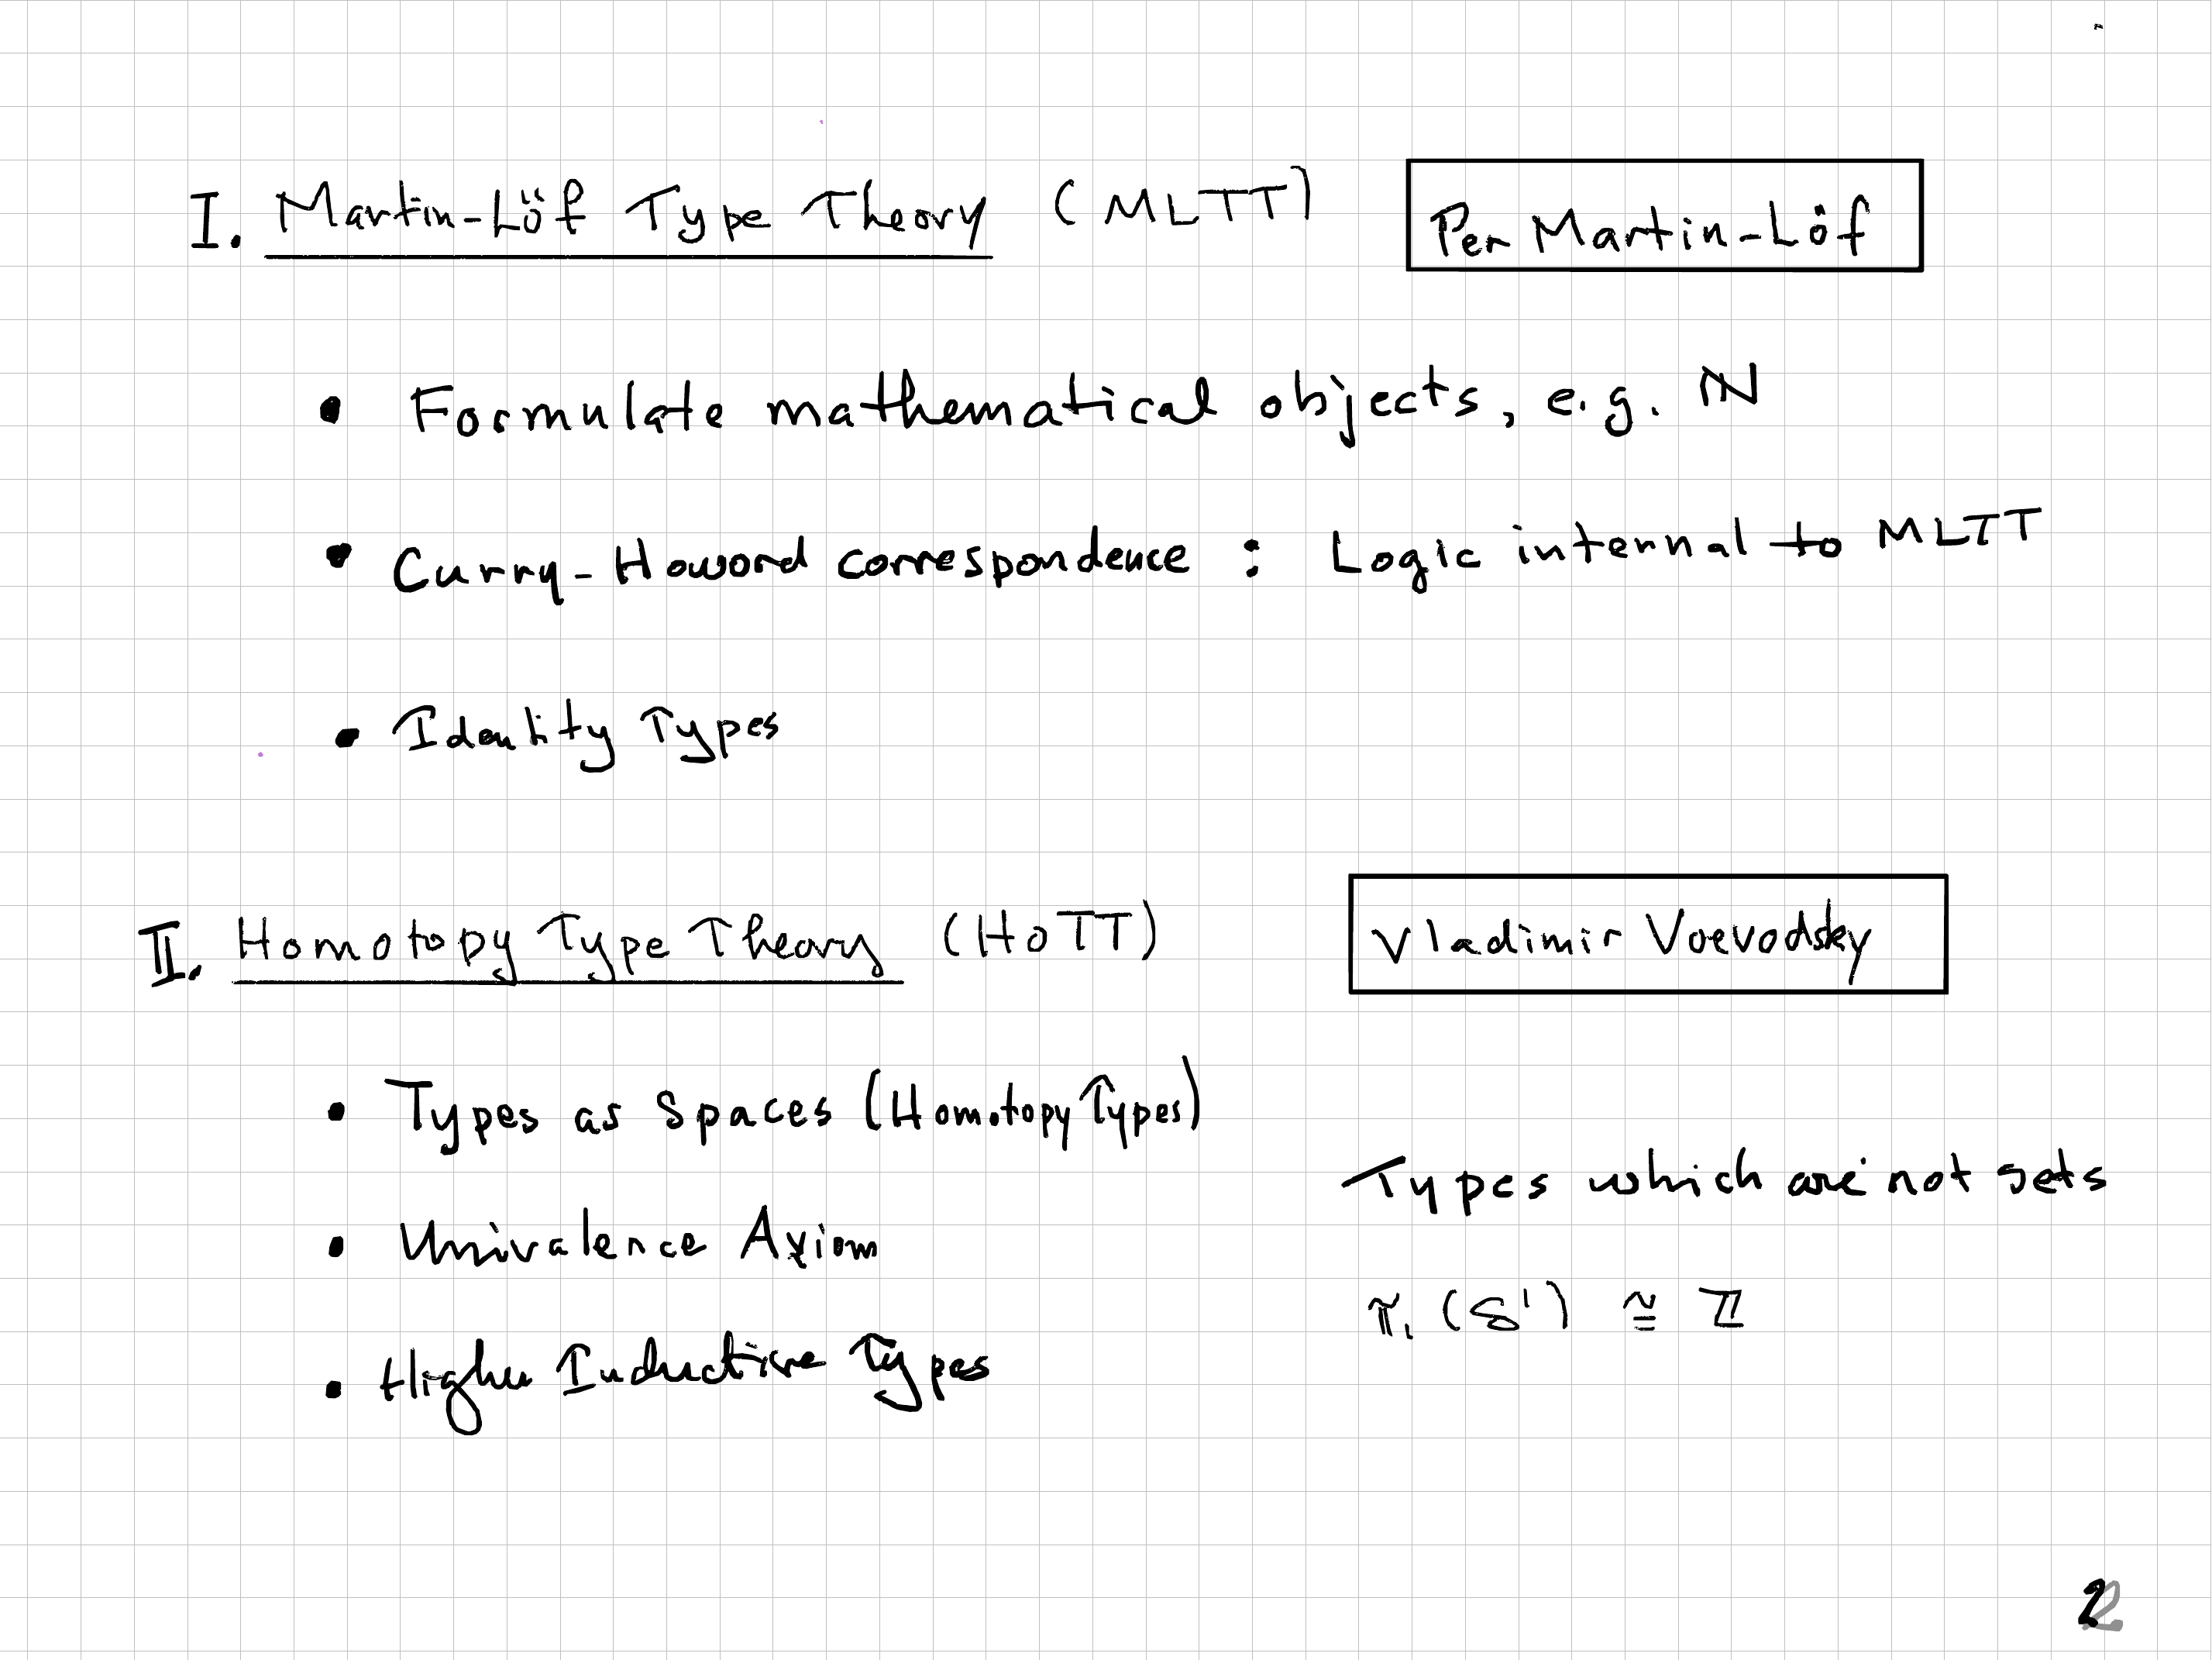 I. Martin-Löf Type Theory (MLTT)
Per Martin-Löf
• Formulate mathematical objects, e.g. ℕ
• Curry-Howard correspondence : Logic internal to MLTT
• Identity Types
II. Homotopy Type Theory (HoTT)
Vladimir Voevodsky
• Types as Spaces (Homotopy Types)
Types which are not sets
• Univalence Axiom
π₁ (S¹) ≅ ℤ
• Higher Inductive Types
2